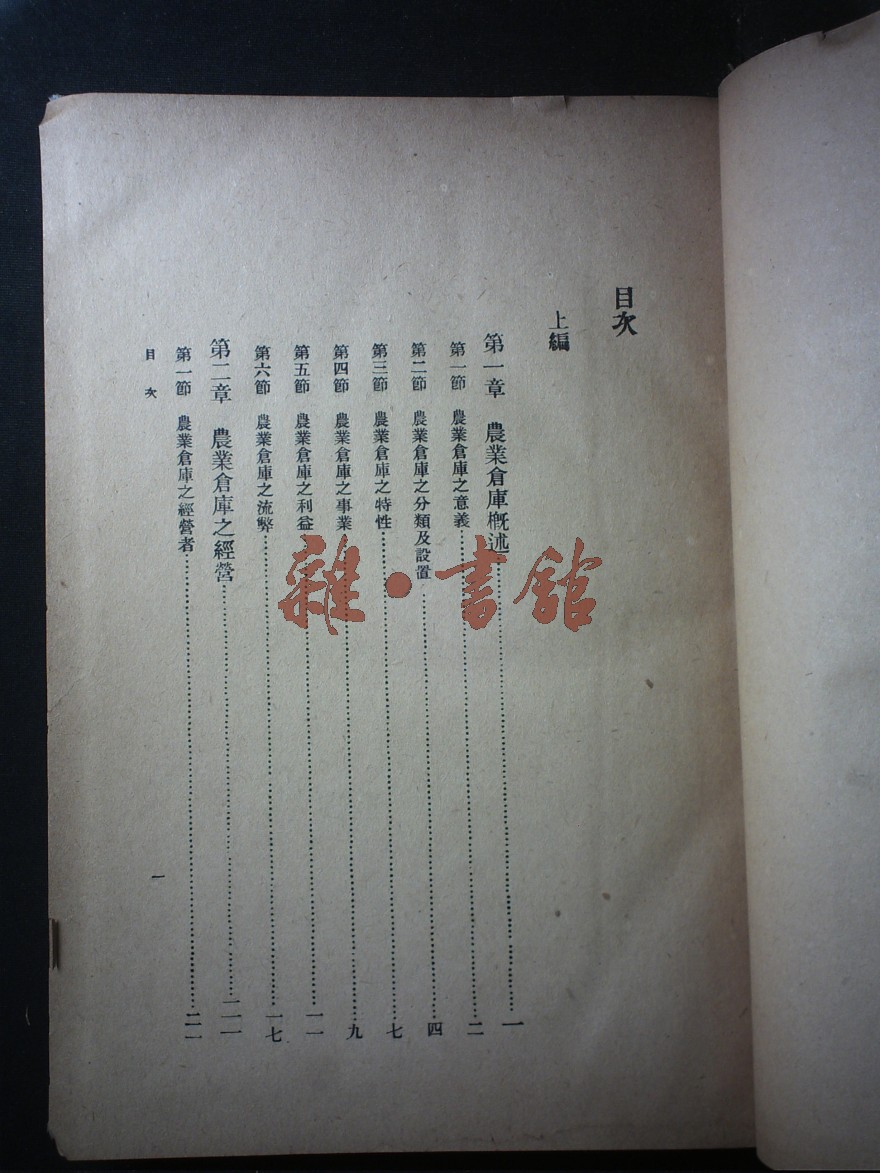 目次
上編
第一章 農業倉庫概述……一
第一節 農業倉庫之意義……二
第二節 農業倉庫之分類及設置……四
第三節 農業倉庫之特性……七
第四節 農業倉庫之事業……九
第五節 農業倉庫之利益……一一
第六節 農業倉庫之流弊……一七
第二章 農業倉庫之經營……二一
第一節 農業倉庫之經營者……二一
目次 一
雜·書館